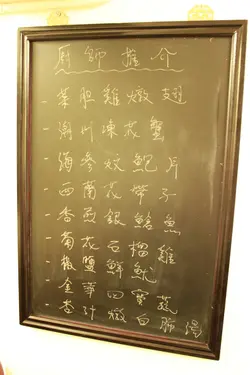 廚師推介
- 菜胆雞燉翅
- 潮州凍花蟹
- 海參炆鮑片
- 西蘭花帶子
- 香煎銀鯧魚
- 花石榴雞
- 椒鹽鮮魷
- 金華四寶蔬
- 杏汁燉白肺湯